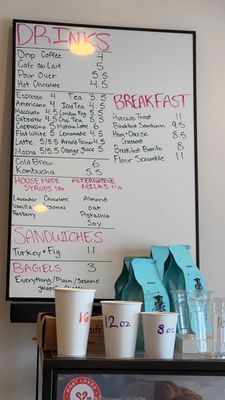 DRINKS
Drip Coffee 4
Cafe au Lait 5
Pour Over 5.5
Hot Chocolate 4.5
Espresso 4 Tea 3.5
Americano 4 Iced Tea 4.5
Macchiato 4.5 London Fog 5
Cortado 4.5 Chai Tea 5
Cappuccino 5 Matcha Latte 6
Flat White 5 Lemonade 4.5
Latte 5/5.5 Arnold Palmer 4.5
Mocha 5.5 Orange Juice 5
Cold Brew 6
Kombucha 5.5
HOUSE MADE SYRUPS
Lavender Chocolate
Vanilla Seasonal
Raspberry
ALTERNATIVE MILKS
Almond
Oat
Pistachio
Soy
BREAKFAST
Avocado Toast 11
Breakfast Sandwich 9.5
Ham + Cheese Croissant 8.5
Breakfast Burrito 8
Flour Scramble 11
SANDWICHES
Turkey + Fig 11
BAGELS 3
Everything/Plain/Sesame
16
12 oz
8 oz